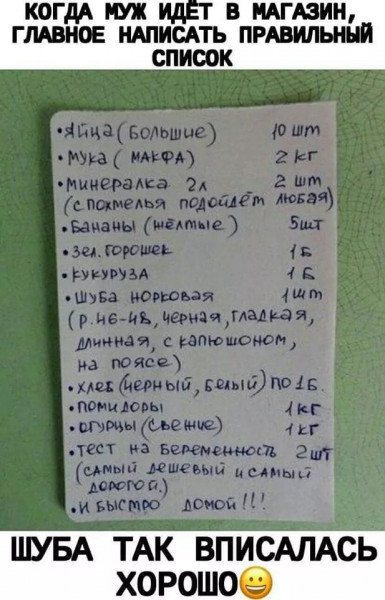 КОГДА МУЖ ИДЁТ В МАГАЗИН,
ГЛАВНОЕ НАПИСАТЬ ПРАВИЛЬНЫЙ
СПИСОК
•Яйца (Большие) 10 шт
•Мука ( МАКФА) 2 кг
•Минералка 2л 2 шт
(с похмелья подойдёт любая)
•Бананы (жёлтые) 5шт
•Зел. горошек 1 Б
•Кукуруза 1 Б
•Шуба норковая 1 шт
(р.46-48, чёрная, гладкая,
длинная, с капюшоном,
на поясе)
•хлеб (чёрный, белый) по 1Б.
•помидоры 1 кг
•огурцы (свежие) 1 кг
•тест на беременность 2 шт
(самый дешевый и самый
дорогой.)
•и быстро домой!!!
ШУБА ТАК ВПИСАЛАСЬ
ХОРОШО😀